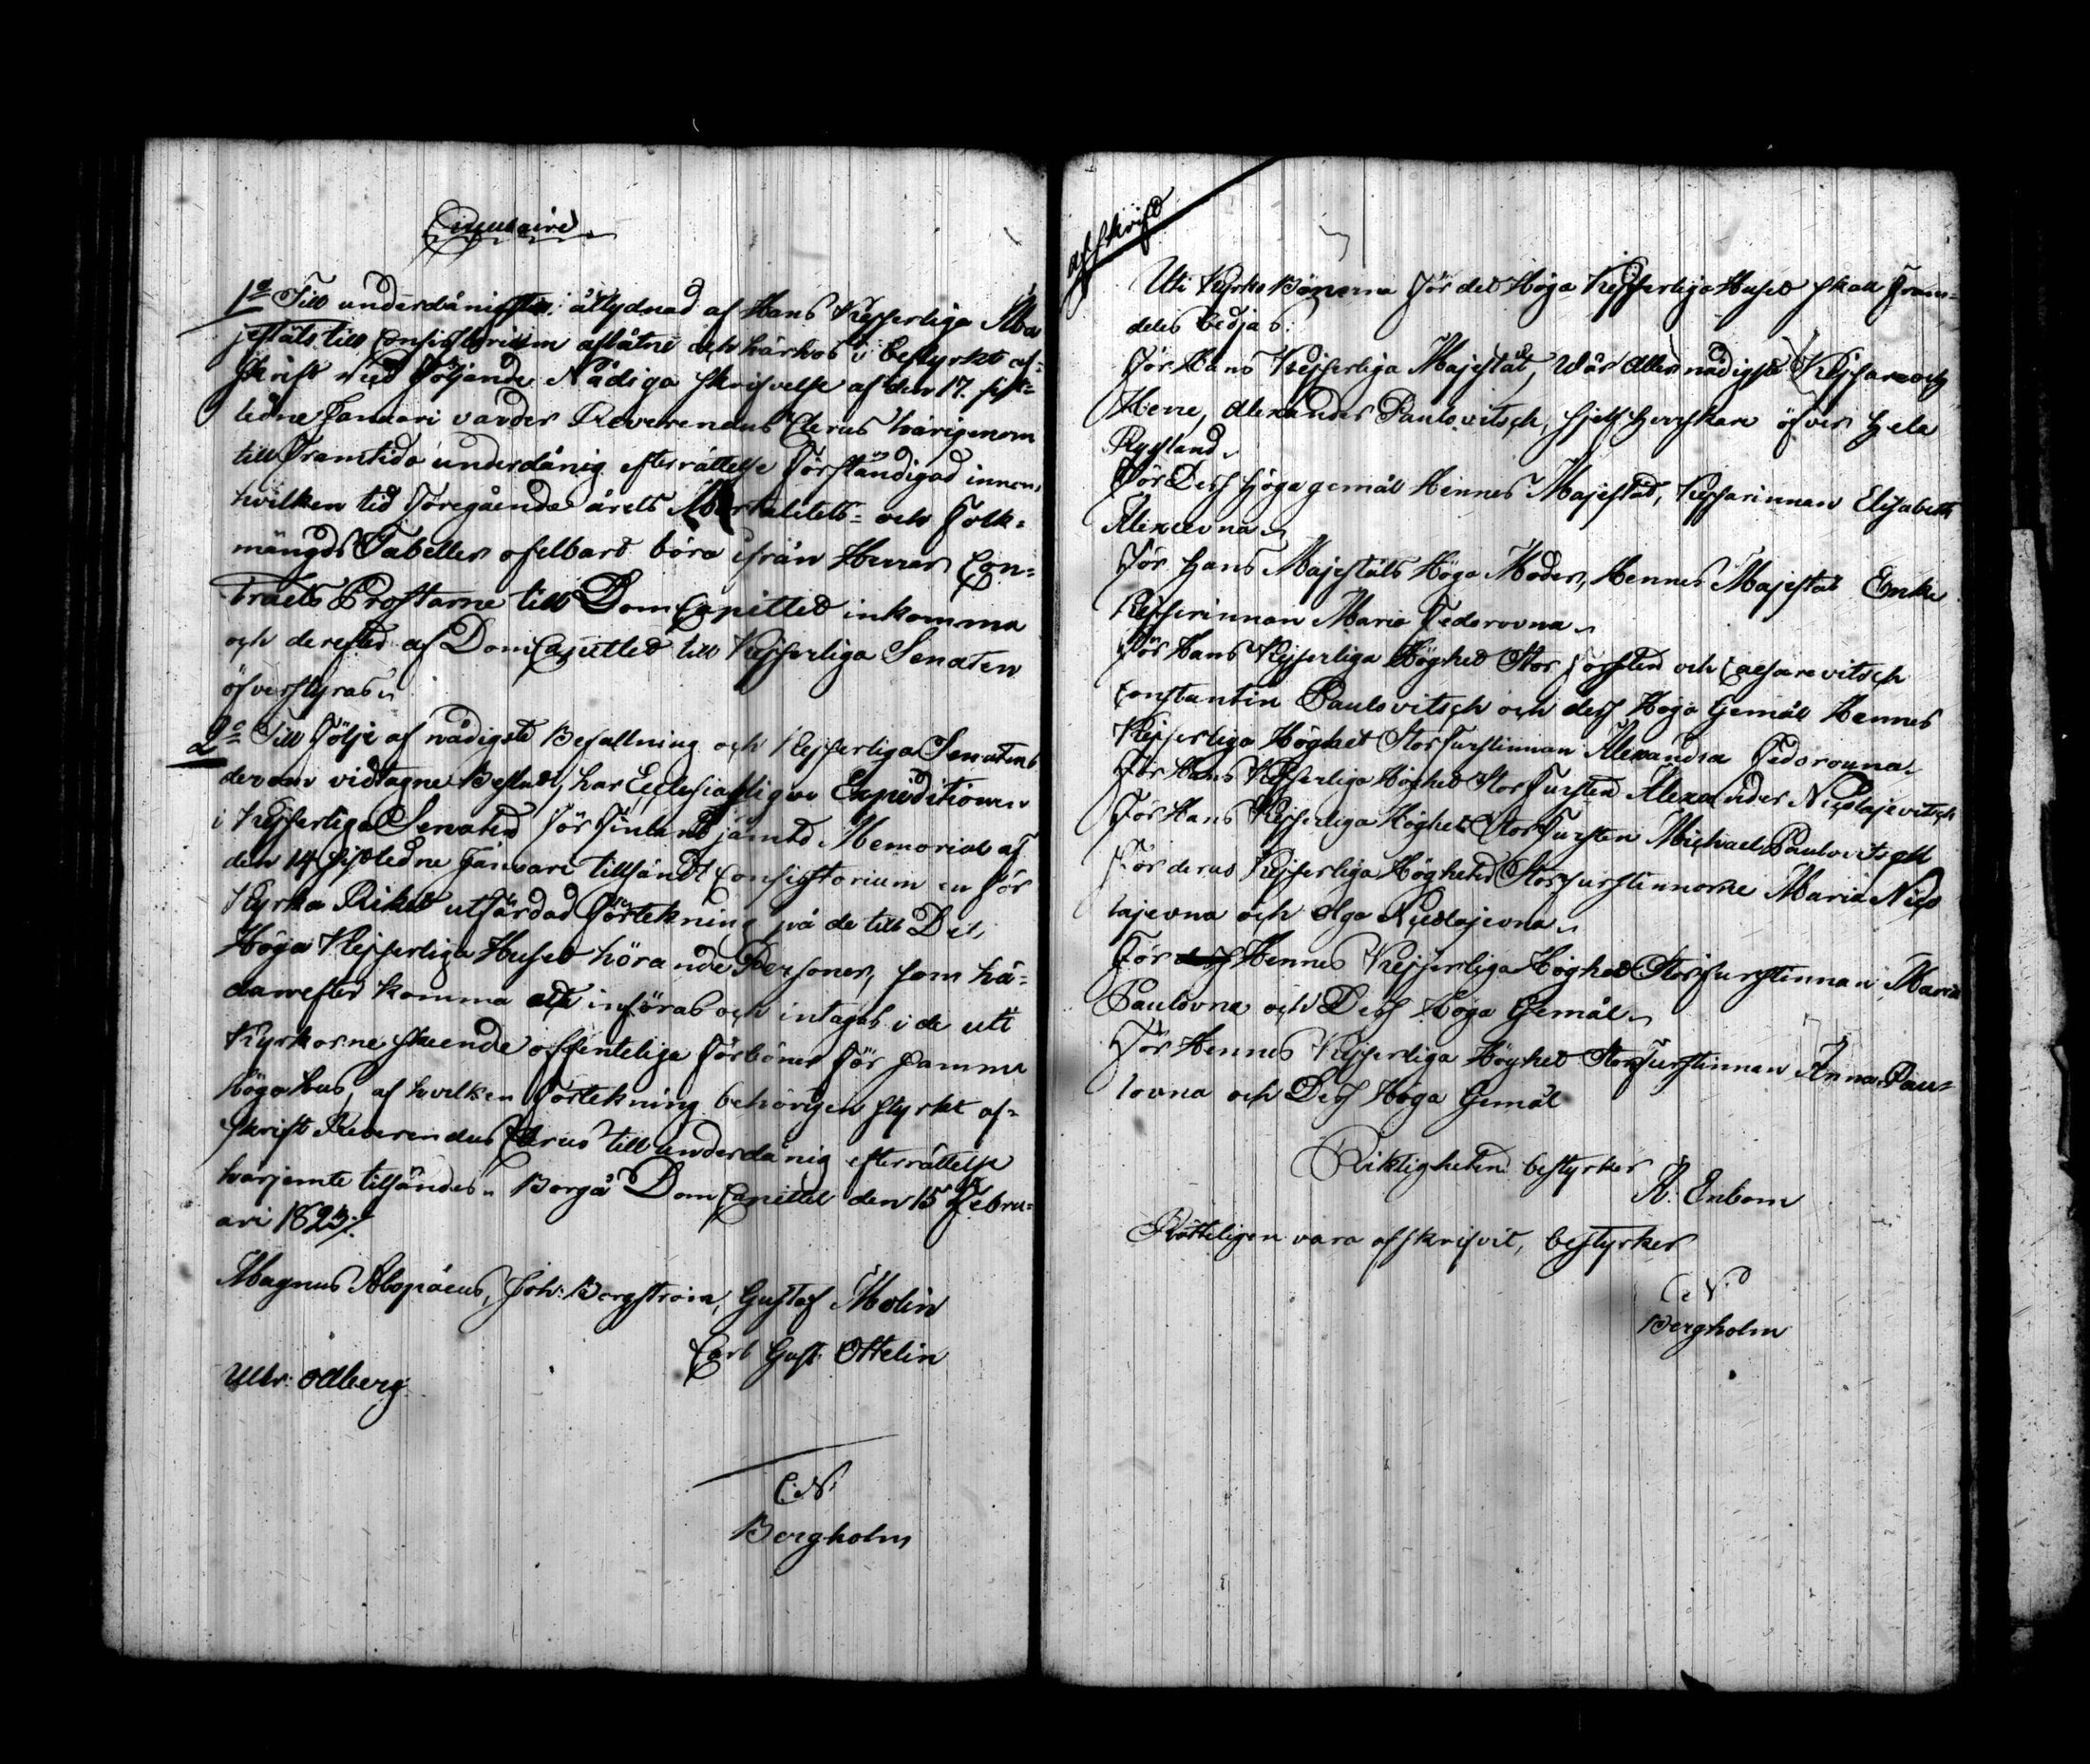 Circulaire
1o Till underdånigste åtlydnad af Hans Kejserliga Ma
jestäts till Consistorium aflåtne och härhos i bestyrkt af-
skrift följande Nådiga skrifvelse af den 17. sist-
ledne Januari varder Reverendus Clerus härigenom
till framtida underdånig efterrättelse förständigad innom
hvilken tid föregående årets Mortalitets- och Folk-
mängds Tabeller ofelbart böra ifrån Herrar Con-
tracts Prostarne till DomCapitled inkomma
och derefter af DomCapitled till Kejserliga Senaten
öfverstyras.
2o Till följe af nådigste Befallning och Kejserliga Senatens
derom vidtagne Beslut, har Ecclesiastique Expeditionen
i Kejserliga Senaten för Finland jämte Memorial af
den 14 sistledne Januari tillsändt Consistorium en för
Kyrka Riket utfärdad förtekning på de till Det
Höga Kejserliga Huset hörande Personer, som hä-
danefter komma att införas och intagas i de uti
Kyrkorne skeende offenteliga förböner för samma
höga hus, af hvilken förtekning behörigen styrkt af-
skrift Reverendus Clerus till underdånig efterrättelse
harjemte tillsändes. Borgå DomCapittel den 15 Febru-
ari 1823.
Magnus Alopæus, Joh: Borgström, Gustaf Molin
Carl Gust. Ottelin
Ulr: Odberg
C:N:
Bergholm
afskrift
Uti Kyrko Bönerna för det Höga Kejserliga Huset skall fram-
deles bedjas:
För Hans Kejserliga Majestät, Vår Allernådigste Kejsare och
Herre, Alexander Paulovitsch, sjelf herrskare öfver hela
Ryssland.
För Dess höga gemål Hennes Majestät, Kejsarinnan Elisabeth
Alexeevna.
För Hans Majestäts Höga Moder, Hennes Majestät Enke
Kejserinnan Maria Fedorovna.
För Hans Kejserliga Höghet Stor Försten och Caesarevitsch
Constantin Paulovitsch och dess Höga Gemål Hennes
Kejserliga Höghet StorFurstinnan Alexandra Fedorovna.
För Hans Kejserliga Höghet StorFursten Alexander Nicolajevitsch
För Hans Kejserliga Höghet StorFursten Michael Paulovitsch
För deras Kejserliga Högheter Storfurstinnorne Maria Nico
lajevna och Olga Nicolajevna.
För Hennes Kejserliga Höghet Storfurstinnan Maria
Paulovna och Dess Höga Gemål.
För Hennes Kejserliga Höghet StorFurstinnan Anna Pau-
lovna och Dess Höga Gemål
Riktigheten bestyrker
A. Enbom
Rätteligen vara afskrifvit, bestyrker
C N
Bergholm